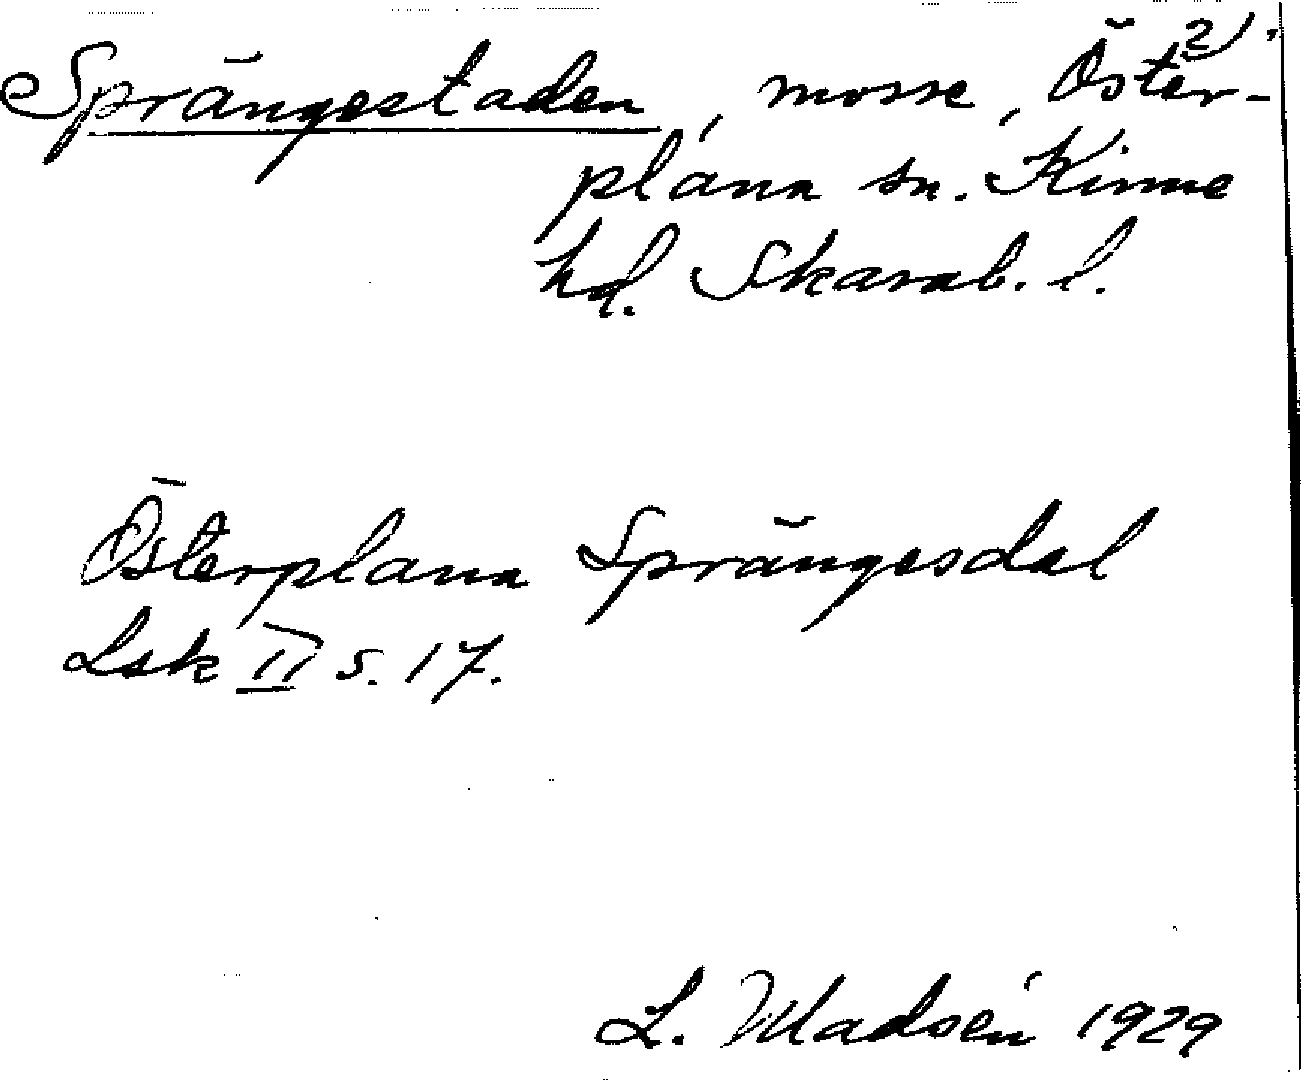 2)
Sprängestaden, mosse, Öster-
plana sn. Kinne
hd. Skarab. l.
Österplana Sprängesdal
Lsk II s. 17.
L. Madsén 1929